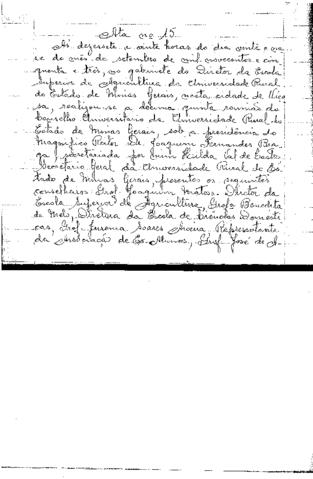 Ata nº 15
Às dezessete e vinte horas do dia vinte e no-
ve do mês de setembro de mil novecentos e cin-
quenta e três, no gabinete do Diretor da Escola
Superior de Agricultura da Universidade Rural
do Estado de Minas Gerais, nesta cidade de Viço-
sa, realizou-se a décima quinta reunião do
Conselho Universitário da Universidade Rural do
Estado de Minas Gerais, sob a presidência do
Magnífico Reitor Dr. Joaquim Fernandes Bra-
ga, secretariada por mim Hilda Val de Castro
Secretário Geral da Universidade Rural do Es-
tado de Minas Gerais, presentes os seguintes
conselheiros: Prof. Joaquim Matos, Diretor da
Escola Superior de Agricultura, Profa Benedita
de Melo, Diretora da Escola de Ciências Domésti-
cas, Prof. Soares Representante
da Associação de Ex-Alunos, Prof. José de A-